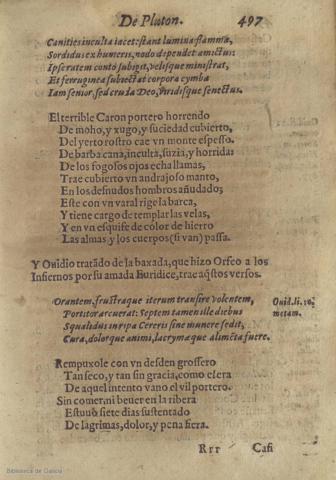 De Pluton. 497
Canities inculta iacet: stant lumina flamma,
Sordidus ex humeris, nodo dependet amictus:
Ipse ratem conto subigit, velisque ministrat,
Et ferruginea subiectat corpora cymba
Iam senior, sed cruda Deo, viridisque senectus.
El terrible Caron portero horrendo
De moho, y xugo, y suciedad cubierto,
Del yerto rostro cae vn monte espesso.
De barba cana, inculta, suzia, y horrida:
De los fogosos ojos echa llamas,
Trae cubierto vn andrajoso manto,
En los desnudos hombros añudado;
Este con vn varal rige la barca,
Y tiene cargo de templar las velas,
Y en vn esquife de color de hierro
Las almas, y los cuerpos (si van) passa.
Y Ouidio tratãdo de la baxada, que hizo Orfeo a los
Infiernos por su amada Euridice, trae aq̃stos versos.
Orantem, frustraque iterum transire volentem,
Ouid. li. 10.
Portitor arcuerat: Septem tamen ille diebus
metam.
Squalidus in ripa Cereris sine munere sedit,
Cura, dolorque animi, lacrymæque alimẽta fuere.
Rempuxole con vn desden grossero
Tan seco, y tan sin gracia, como el era
De aquel intento vano el vil portero.
Sin comer, ni beuer en la ribera
Estuuo siete dias sustentado
De lagrimas, dolor, y pena fiera.
Rrr Casi
Biblioteca de Galicia